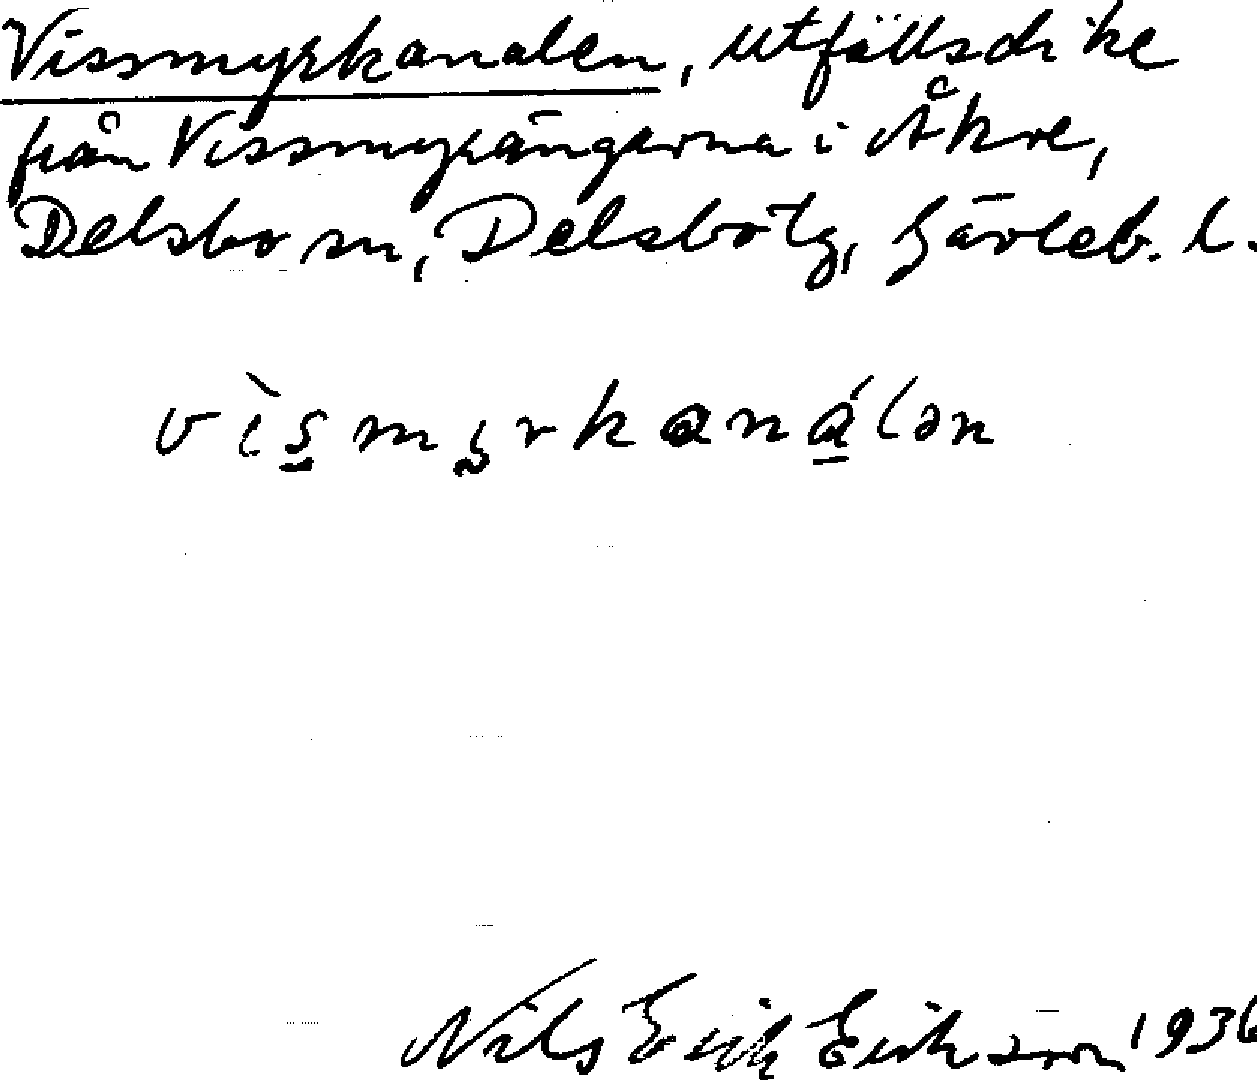 Vissmyrkanalen, utfallsdike
från Vissmyrängarna i Åkre,
Delsbo sn, Delsbo tg, Gävleb. l.
vìsmyrkanálən
Nils Erik Eriksson 1936